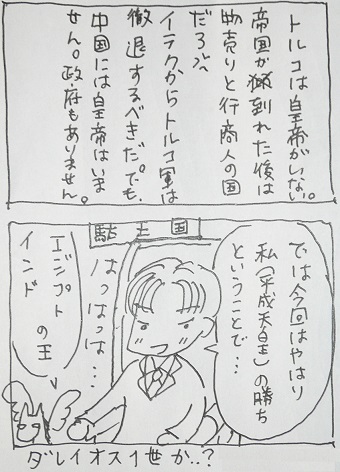 トルコは皇帝がいない。
帝国が倒れた後は
物売りと行商人の国
だろ
イラクからトルコ軍は
徹退するべきだ。でも、
中国には皇帝はいま
せん。政府もありません。
国王
では今回はやはり
私(平成天皇)の勝ち
ということで…
はっはっは…
エジプト
の王
インド
ダレイオス1世か..?